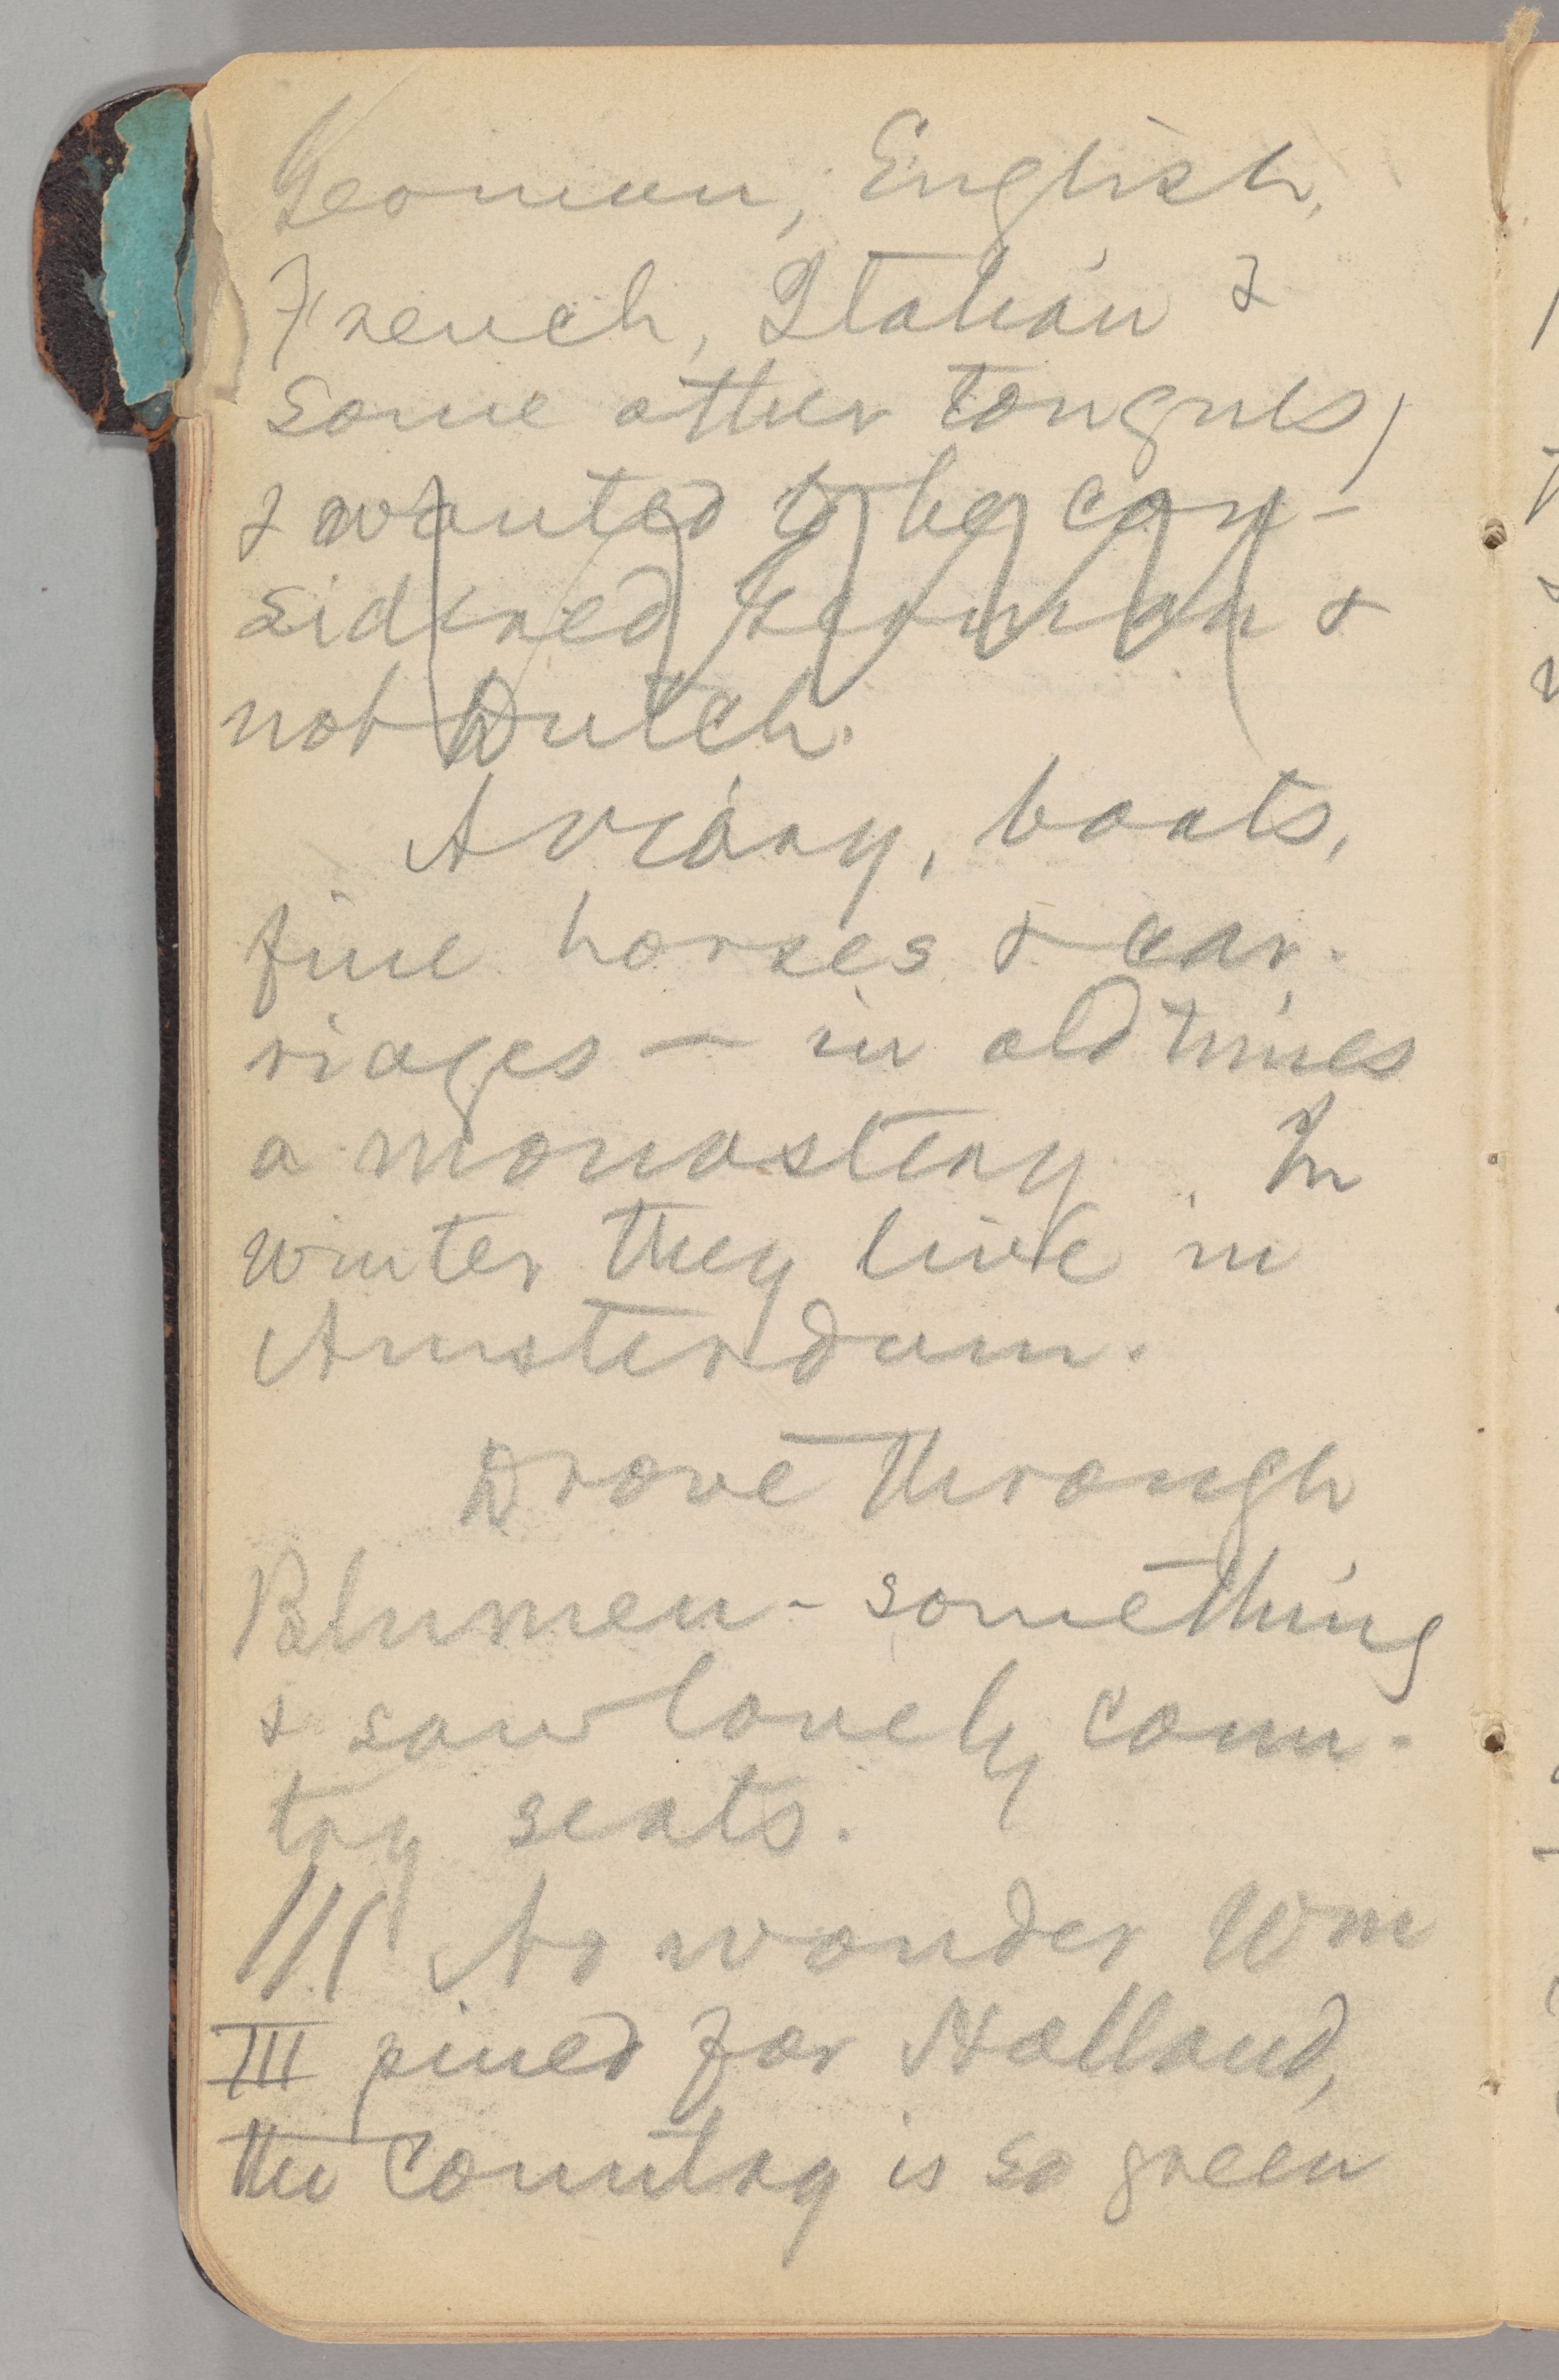 German, English,
French, Italian &
some other tongues,
& wanted to be con-
sidered German &
not Dutch.
Aviary, boats,
fine horses & car-
riages — in old times
a monastery. In
winter they live in
Amsterdam.
Drove through
Blumen-something
& saw lovely coun-
try seats.
/// No wonder Wm
III pined for Holland,
the country is so green